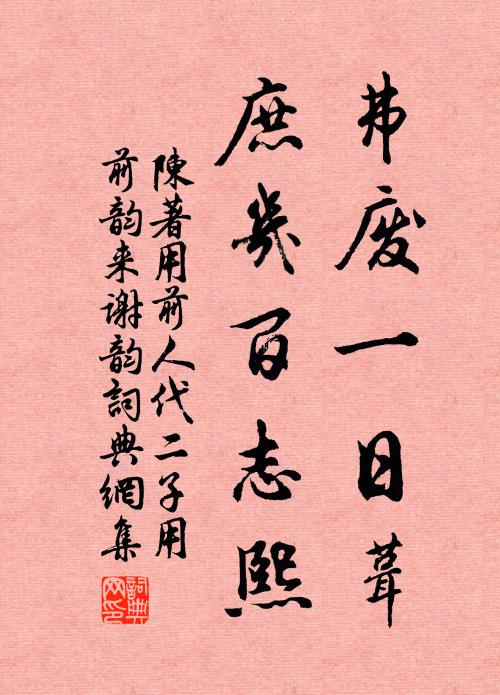 弗废一日葺
庶幾百志熙
陳著用前人代二子用
前韵来谢韵詞典網集
詞典網印